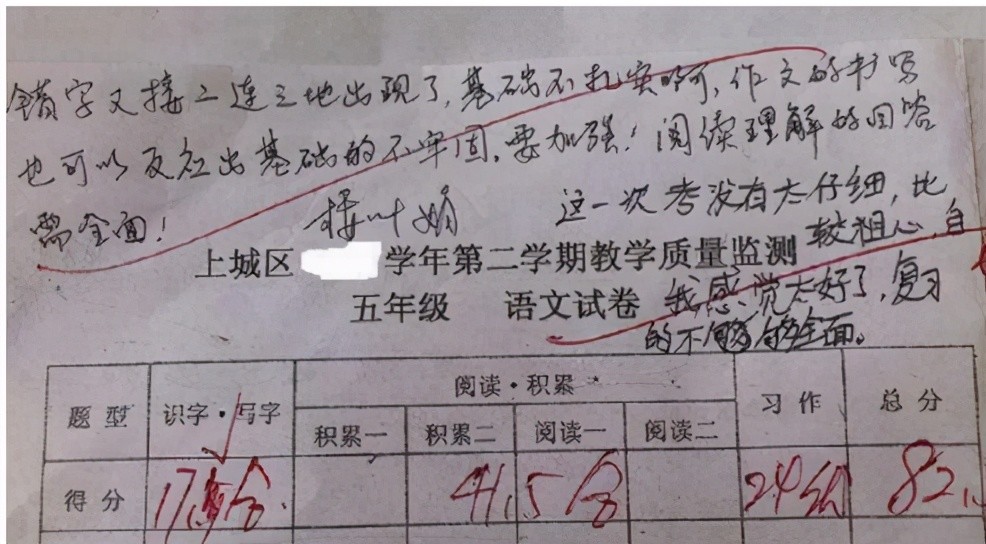 错字又接二连三地出现了，基础不扎实啊，作文的书写
也可以反应出基础的不牢固，要加强！阅读理解的回答
需全面！
这一次考没有太仔细，比
较粗心，自
我感觉太好了，复习
的不够全面。
上城区 学年第二学期教学质量监测
五年级 语文试卷
题型 识字·写字 阅读·积累 习作 总分
积累一 积累二 阅读一 阅读二
得分 17.5分 41.5分 24分 82